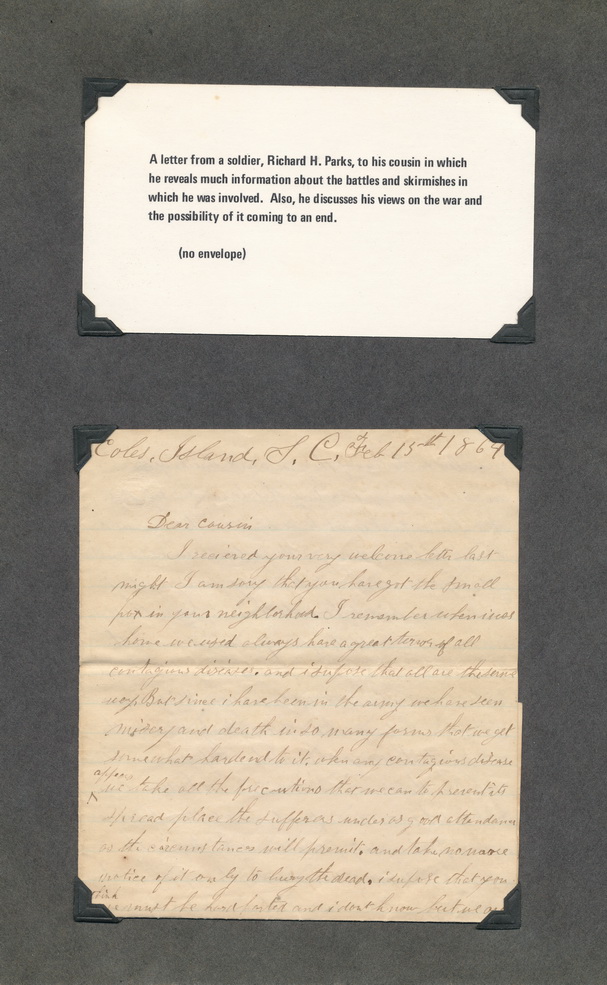 A letter from a soldier, Richard H. Parks, to his cousin in which
he reveals much information about the battles and skirmishes in
which he was involved. Also, he discusses his views on the war and
the possibility of it coming to an end.
(no envelope)
Coles, Island, S. C. Feb 15th 1864
Dear cousin
I recieved your very welcome letter last
night I am sory that you have got the small
pox in your neighborhood. I remember when i was
home we used always have a great terror of all
contagious diseases. and i supose that all are the same
way. But since i have been in the army we have seen
misery and death in so many forms that we get
somewhat hardend to it. when any contagious disease
appears
we take all the precautions that we can to prevent its
spread place the sufferers under as good attendance
as the circumstances will premit. and take no more
notice of it only to bury the dead. i supose that you
think
we must be hard harted and i dont know but we are